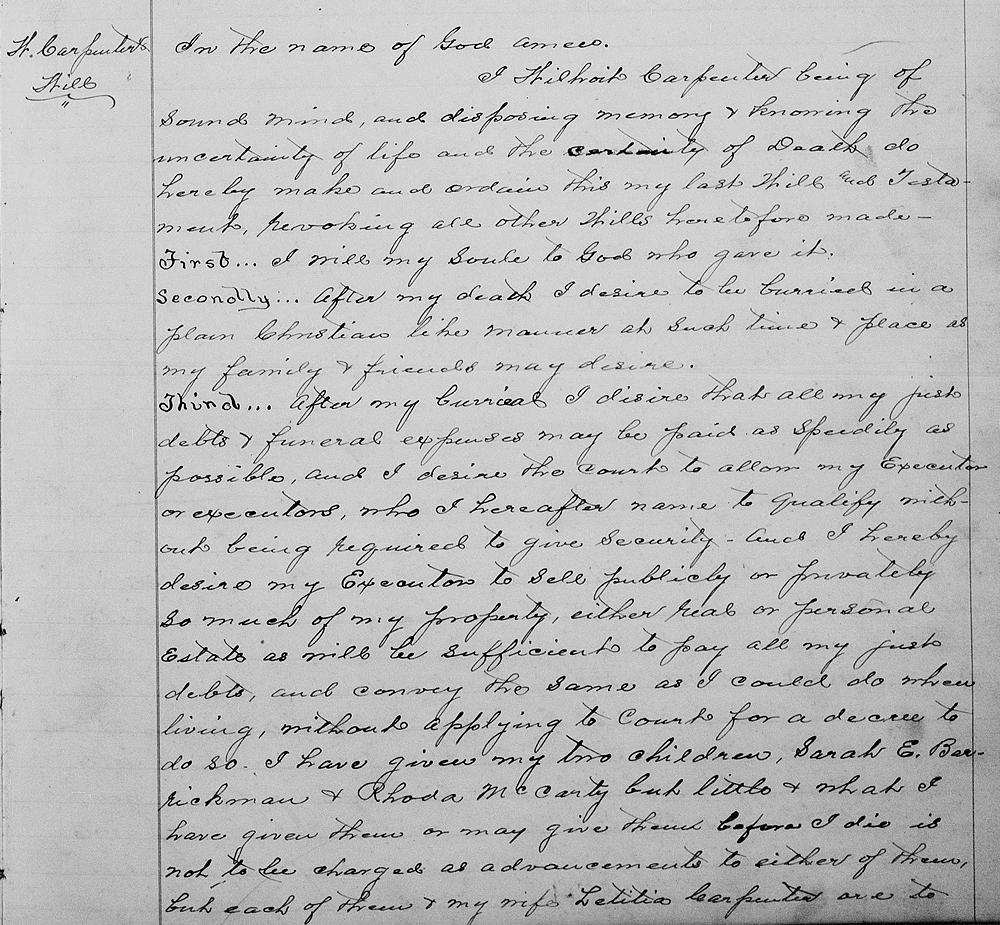 W. Carpenter's
Will
"
In the name of God Amen.
I Wilhoit Carpenter being of
sound mind, and disposing memory & knowing the
uncertainty of life and the certainty of Death do
hereby make and ordain this my last Will and Testa-
ment, revoking all other Wills heretofore made-
First... I will my soule to God who gave it.
Secondly... After my death I desire to be burried in a
plain Christian like manner at such time & place as
my family & friends may desire.
Third... After my burrial I disire that all my just
debts & funeral expenses may be paid as speedily as
possible, and I desire the court to allow my Executor
or executors, who I hereafter name to qualify with-
out being required to give security - And I hereby
desire my Executor to sell publicly or privately
so much of my property, either real or personal
Estate as will be sufficient to pay all my just
debts, and convey the same as I could do when
living, without applying to Court for a decree to
do so. I have given my two children, Sarah E. Bar-
rickman & Rhoda McCarty but little & what I
have given them or may give them before I die is
not to be charged as advancements to either of them,
but each of them & my wife Letitia Carpenter are to